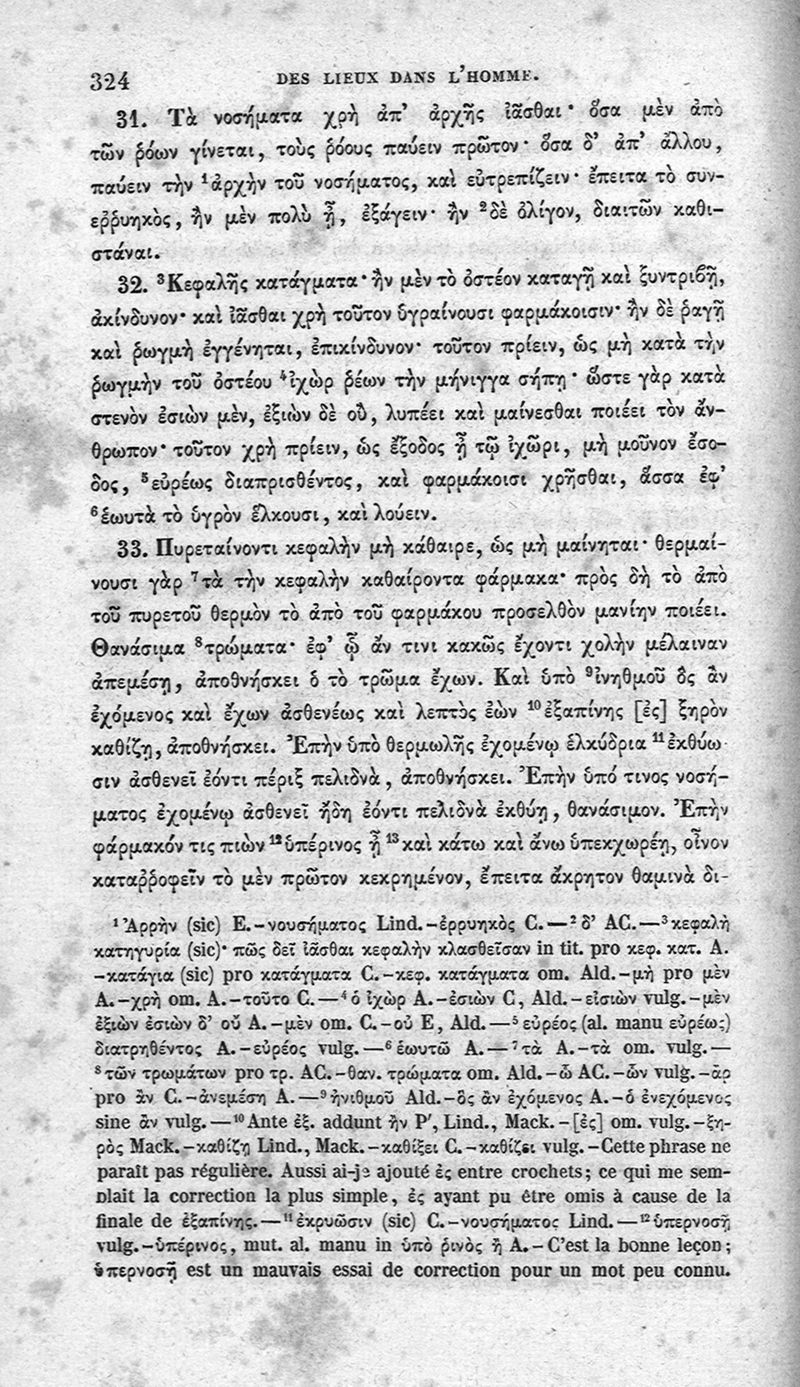 324 DES LIEUX DANS L'HOMME.
31. Τὰ νοσήματα χρὴ ἀπ' ἀρχῆς ἰᾶσθαι· ὅσα μὲν ἀπὸ
τῶν ῥόων γίνεται, τοὺς ῥόους παύειν πρῶτον· ὅσα δ' ἀπ' ἄλλου,
παύειν τὴν ¹ἀρχὴν τοῦ νοσήματος, καὶ εὐτρεπίζειν· ἔπειτα τὸ συν-
εῤῥυηκὸς, ἢν μὲν πολὺ ᾖ, ἐξάγειν· ἢν ²δὲ ὀλίγον, διαιτῶν καθι-
στάναι.
32. ³Κεφαλῆς κατάγματα· ἢν μὲν τὸ ὀστέον καταγῇ καὶ ξυντριϐῇ,
ἀκίνδυνον· καὶ ἰᾶσθαι χρὴ τοῦτον ὑγραίνουσι φαρμάκοισιν· ἢν δὲ ῥαγῇ
καὶ ῥωγμὴ ἐγγένηται, ἐπικίνδυνον· τοῦτον πρίειν, ὡς μὴ κατὰ τὴν
ῥωγμὴν τοῦ ὀστέου ⁴ἰχὼρ ῥέων τὴν μήνιγγα σήπῃ· ὥστε γὰρ κατὰ
στενὸν ἐσιὼν μὲν, ἐξιὼν δὲ οὒ, λυπέει καὶ μαίνεσθαι ποιέει τὸν ἄν-
θρωπον· τοῦτον χρὴ πρίειν, ὡς ἔξοδος ᾖ τῷ ἰχῶρι, μὴ μοῦνον ἔσο-
δος, ⁵εὐρέως διαπρισθέντος, καὶ φαρμάκοισι χρῆσθαι, ἅσσα ἐφ'
⁶ἑωυτὰ τὸ ὑγρὸν ἕλκουσι, καὶ λούειν.
33. Πυρεταίνοντι κεφαλὴν μὴ κάθαιρε, ὡς μὴ μαίνηται· θερμαί-
νουσι γὰρ ⁷τὰ τὴν κεφαλὴν καθαίροντα φάρμακα· πρὸς δὴ τὸ ἀπὸ
τοῦ πυρετοῦ θερμὸν τὸ ἀπὸ τοῦ φαρμάκου προσελθὸν μανίην ποιέει.
Θανάσιμα ⁸τρώματα· ἐφ' ᾧ ἄν τινι κακῶς ἔχοντι χολὴν μέλαιναν
ἀπεμέσῃ, ἀποθνήσκει ὁ τὸ τρῶμα ἔχων. Καὶ ὑπὸ ⁹ἰνηθμοῦ ὃς ἂν
ἐχόμενος καὶ ἔχων ἀσθενέως καὶ λεπτὸς ἐὼν ¹⁰ἐξαπίνης [ἐς] ξηρὸν
καθίζῃ, ἀποθνήσκει. Ἐπὴν ὑπὸ θερμωλῆς ἐχομένῳ ἑλκύδρια ¹¹ἐκθύω-
σιν ἀσθενεῖ ἐόντι πέριξ πελιδνὰ, ἀποθνήσκει. Ἐπὴν ὑπό τινος νοσή-
ματος ἐχομένῳ ἀσθενεῖ ἤδη ἐόντι πελιδνὰ ἐκθύῃ, θανάσιμον. Ἐπὴν
φάρμακόν τις πιὼν ¹²ὑπέρινος ᾖ ¹³καὶ κάτω καὶ ἄνω ὑπεκχωρέῃ, οἶνον
καταῤῥοφεῖν τὸ μὲν πρῶτον κεκρημένον, ἔπειτα ἄκρητον θαμινὰ δι-
¹ Ἀρρὴν (sic) E.-νουσήματος Lind.-ἐρρυηκὸς C.—² δ' AC.—³ κεφαλὴ
κατηγυρία (sic)· πῶς δεῖ ἰᾶσθαι κεφαλὴν κλασθεῖσαν in tit. pro κεφ. κατ. A.
-κατάγια (sic) pro κατάγματα C.-κεφ. κατάγματα om. Ald.-μὴ pro μὲν
A.-χρὴ om. A.-τοῦτο C.—⁴ ὁ ἰχὼρ A.-ἐσιὼν C, Ald.-εἰσιὼν vulg.-μὲν
ἐξιὼν ἐσιὼν δ' οὔ A.-μὲν om. C.-οὐ E, Ald.—⁵ εὐρέος (al. manu εὐρέως)
διατρηθέντος A.-εὐρέος vulg.—⁶ ἑωυτῶ A.—⁷ τὰ A.-τὰ om. vulg.—
⁸ τῶν τρωμάτων pro τρ. AC.-θαν. τρώματα om. Ald.-ὦ AC.-ὧν vulg.-ἂρ
pro ἂν C.-ἀνεμέση A.—⁹ ἠνιθμοῦ Ald.-ὃς ἂν ἐχόμενος A.-ὁ ἐνεχόμενος
sine ἂν vulg.—¹⁰ Ante ἐξ. addunt ἢν P', Lind., Mack.-[ἐς] om. vulg.-ξη-
ρὸς Mack.-καθίζῃ Lind., Mack.-καθίξει C.-καθίζει vulg.-Cette phrase ne
paraît pas régulière. Aussi ai-je ajouté ἐς entre crochets; ce qui me sem-
blait la correction la plus simple, ἐς ayant pu être omis à cause de la
finale de ἐξαπίνης.—¹¹ ἐκρυῶσιν (sic) C.-νουσήματος Lind.—¹² ὑπερνοσῇ
vulg.-ὑπέρινος, mut. al. manu in ὑπὸ ῥινὸς ἢ A.-C'est la bonne leçon;
ὑπερνοσῇ est un mauvais essai de correction pour un mot peu connu.